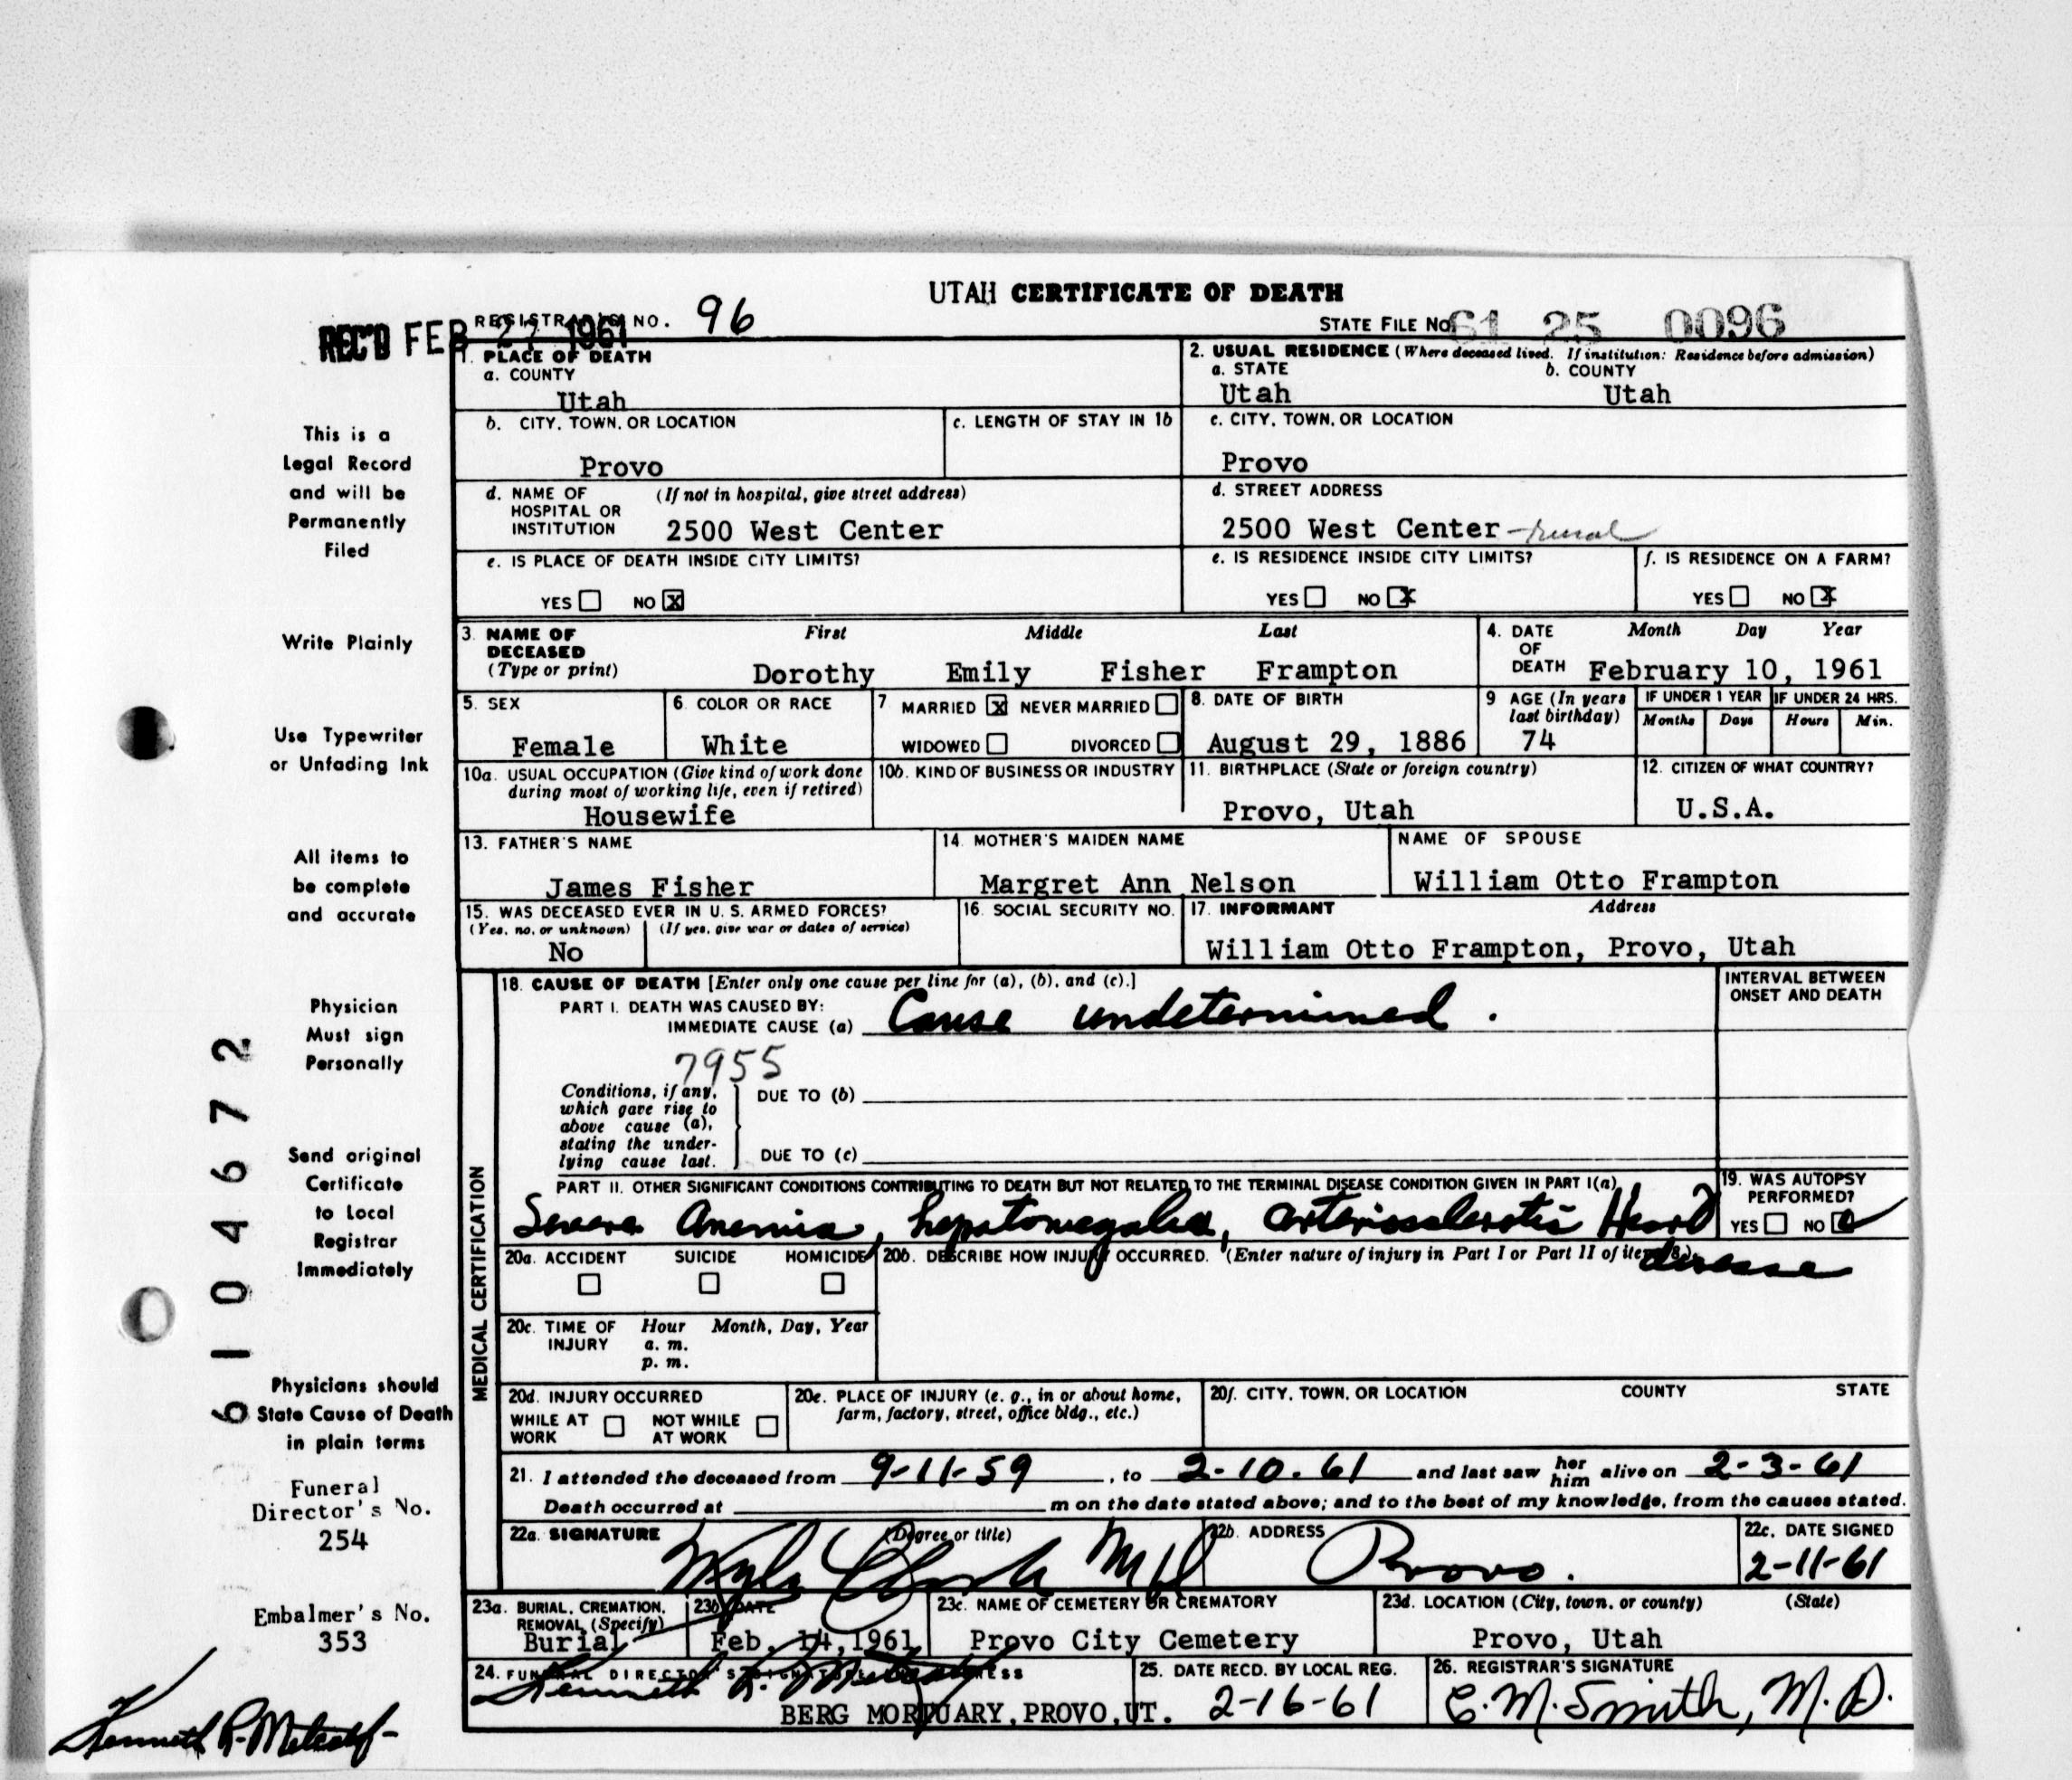 UTAH CERTIFICATE OF DEATH
REC'D FEB 27 1961 REGISTRAR'S NO. 96
STATE FILE No. 61 25 0096
1. PLACE OF DEATH
a. COUNTY
Utah
2. USUAL RESIDENCE (Where deceased lived. If institution: Residence before admission)
a. STATE b. COUNTY
Utah Utah
b. CITY, TOWN, OR LOCATION
Provo
c. LENGTH OF STAY IN 1b
c. CITY, TOWN, OR LOCATION
Provo
d. NAME OF (If not in hospital, give street address)
HOSPITAL OR
INSTITUTION 2500 West Center
d. STREET ADDRESS
2500 West Center - rural
e. IS PLACE OF DEATH INSIDE CITY LIMITS?
YES NO X
e. IS RESIDENCE INSIDE CITY LIMITS?
YES NO X
f. IS RESIDENCE ON A FARM?
YES NO X
3. NAME OF First Middle Last
DECEASED
(Type or print) Dorothy Emily Fisher Frampton
4. DATE Month Day Year
OF
DEATH February 10, 1961
5. SEX
Female
6. COLOR OR RACE
White
7 MARRIED X NEVER MARRIED
WIDOWED DIVORCED
8. DATE OF BIRTH
August 29, 1886
9 AGE (In years
last birthday)
74
IF UNDER 1 YEAR IF UNDER 24 HRS.
Months Days Hours Min.
10a. USUAL OCCUPATION (Give kind of work done
during most of working life, even if retired)
Housewife
10b. KIND OF BUSINESS OR INDUSTRY
11. BIRTHPLACE (State or foreign country)
Provo, Utah
12. CITIZEN OF WHAT COUNTRY?
U.S.A.
13. FATHER'S NAME
James Fisher
14. MOTHER'S MAIDEN NAME
Margret Ann Nelson
NAME OF SPOUSE
William Otto Frampton
15. WAS DECEASED EVER IN U. S. ARMED FORCES?
(Yes, no, or unknown) (If yes, give war or dates of service)
No
16. SOCIAL SECURITY NO.
17. INFORMANT Address
William Otto Frampton, Provo, Utah
MEDICAL CERTIFICATION
18. CAUSE OF DEATH [Enter only one cause per line for (a), (b), and (c).]
PART I. DEATH WAS CAUSED BY:
IMMEDIATE CAUSE (a) Cause undetermined.
INTERVAL BETWEEN
ONSET AND DEATH
7955
Conditions, if any,
which gave rise to
above cause (a),
stating the under-
lying cause last.
DUE TO (b)
DUE TO (c)
PART II. OTHER SIGNIFICANT CONDITIONS CONTRIBUTING TO DEATH BUT NOT RELATED TO THE TERMINAL DISEASE CONDITION GIVEN IN PART I(a)
Severe Anemia, hepatomegalia, arteriosclerotic Heart
disease
19. WAS AUTOPSY
PERFORMED?
YES NO
20a. ACCIDENT SUICIDE HOMICIDE
20b. DESCRIBE HOW INJURY OCCURRED. (Enter nature of injury in Part I or Part II of item 18.)
20c. TIME OF Hour Month, Day, Year
INJURY a. m.
p. m.
20d. INJURY OCCURRED
WHILE AT NOT WHILE
WORK AT WORK
20e. PLACE OF INJURY (e. g., in or about home,
farm, factory, street, office bldg., etc.)
20f. CITY, TOWN, OR LOCATION COUNTY STATE
21. I attended the deceased from 9-11-59, to 2-10-61 and last saw her him alive on 2-3-61
Death occurred at m on the date stated above; and to the best of my knowledge, from the causes stated.
22a. SIGNATURE (Degree or title)
M D
22b. ADDRESS
Provo.
22c. DATE SIGNED
2-11-61
23a. BURIAL, CREMATION,
REMOVAL (Specify)
Burial
23b. DATE
Feb. 14, 1961
23c. NAME OF CEMETERY OR CREMATORY
Provo City Cemetery
23d. LOCATION (City, town, or county) (State)
Provo, Utah
24. FUNERAL DIRECTOR'S SIGNATURE ADDRESS
Kenneth R. Metcalf
BERG MORTUARY, PROVO, UT.
25. DATE RECD. BY LOCAL REG.
2-16-61
26. REGISTRAR'S SIGNATURE
C. M. Smith, M. D.
This is a
Legal Record
and will be
Permanently
Filed
Write Plainly
Use Typewriter
or Unfading Ink
All items to
be complete
and accurate
Physician
Must sign
Personally
Send original
Certificate
to Local
Registrar
Immediately
Physicians should
State Cause of Death
in plain terms
Funeral
Director's No.
254
Embalmer's No.
353
Kenneth R. Metcalf
6104672